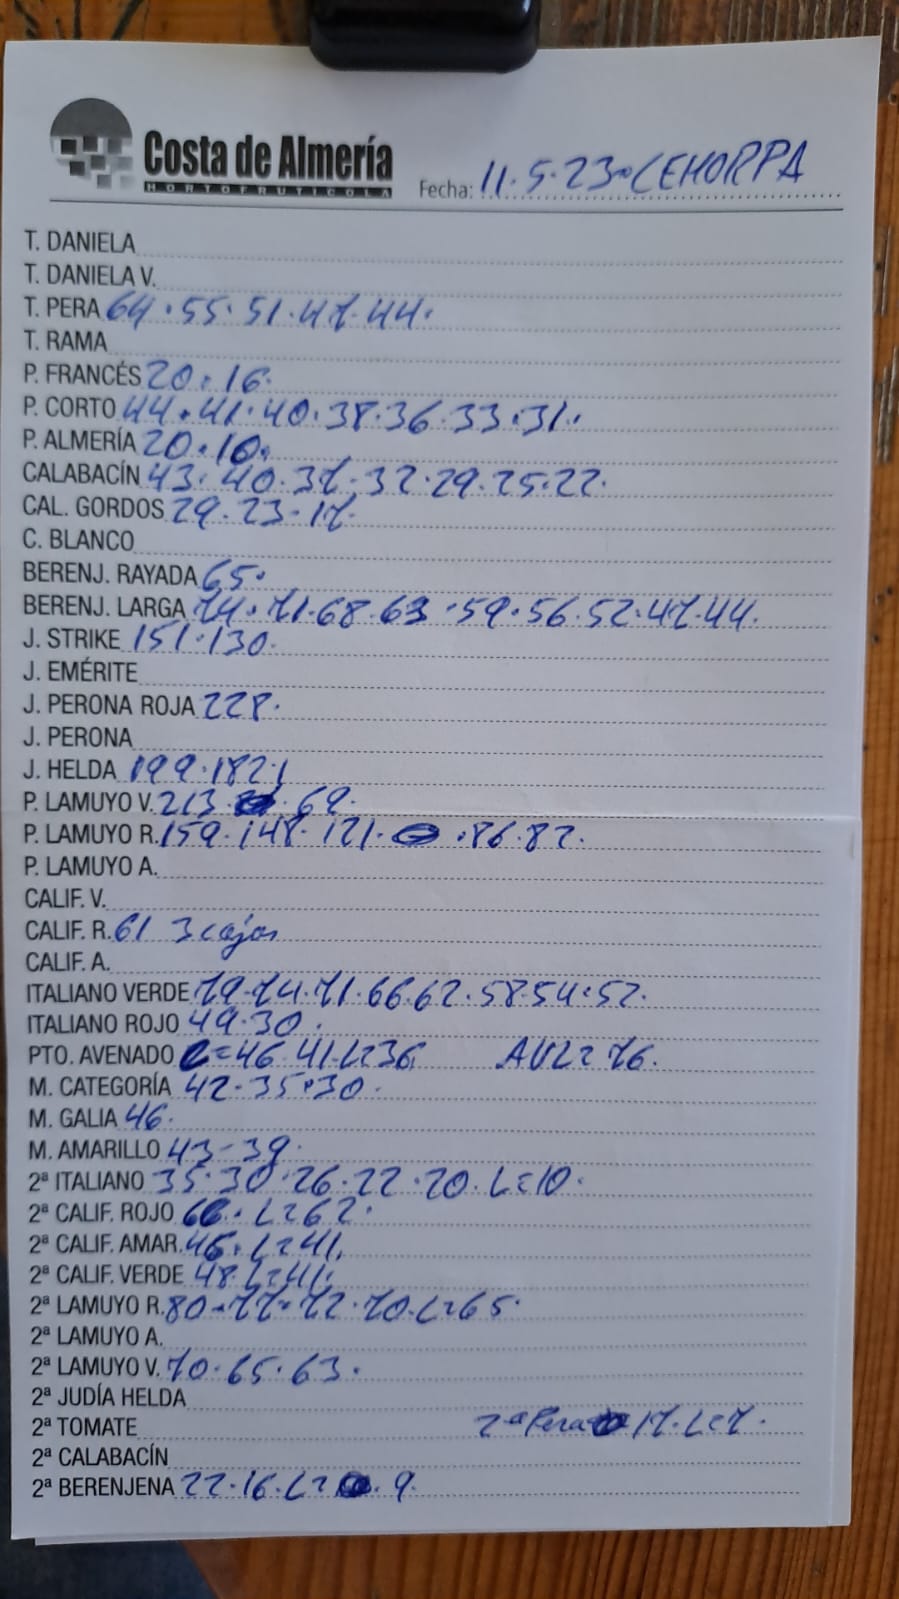 Costa de Almería
HORTOFRUTICOLA
Fecha: 11.5.23. CEHORPA
T. DANIELA
T. DANIELA V.
T. PERA 64.55.51.47.44.
T. RAMA
P. FRANCÉS 20.16.
P. CORTO 44.41.40.38.36.33.31.
P. ALMERÍA 20.10.
CALABACÍN 43.40.37.32.29.25.22.
CAL. GORDOS 29.23.17.
C. BLANCO
BERENJ. RAYADA 65.
BERENJ. LARGA 74.71.68.63.59.56.52.47.44.
J. STRIKE 151.130.
J. EMÉRITE
J. PERONA ROJA 228.
J. PERONA
J. HELDA 199.182.
P. LAMUYO V. 213. 69.
P. LAMUYO R. 159.148.121. .86.82.
P. LAMUYO A.
CALIF. V.
CALIF. R. 61 3 cajas
CALIF. A.
ITALIANO VERDE 79.74.71.66.62.58.54.52.
ITALIANO ROJO 49.30.
PTO. AVENADO C=46.41.L=36. AVL=76.
M. CATEGORÍA 42.35.30.
M. GALIA 46.
M. AMARILLO 43-39.
2ª ITALIANO 35.30.26.22.20.L=10.
2ª CALIF. ROJO L=62.
2ª CALIF. AMAR. 45.L=41.
2ª CALIF. VERDE 48.L=41.
2ª LAMUYO R. 80.77.72.70.L=65.
2ª LAMUYO A.
2ª LAMUYO V. 70.65.63.
2ª JUDÍA HELDA
2ª TOMATE 2ª Pera 17.L=7.
2ª CALABACÍN
2ª BERENJENA 22.16.L= 9.